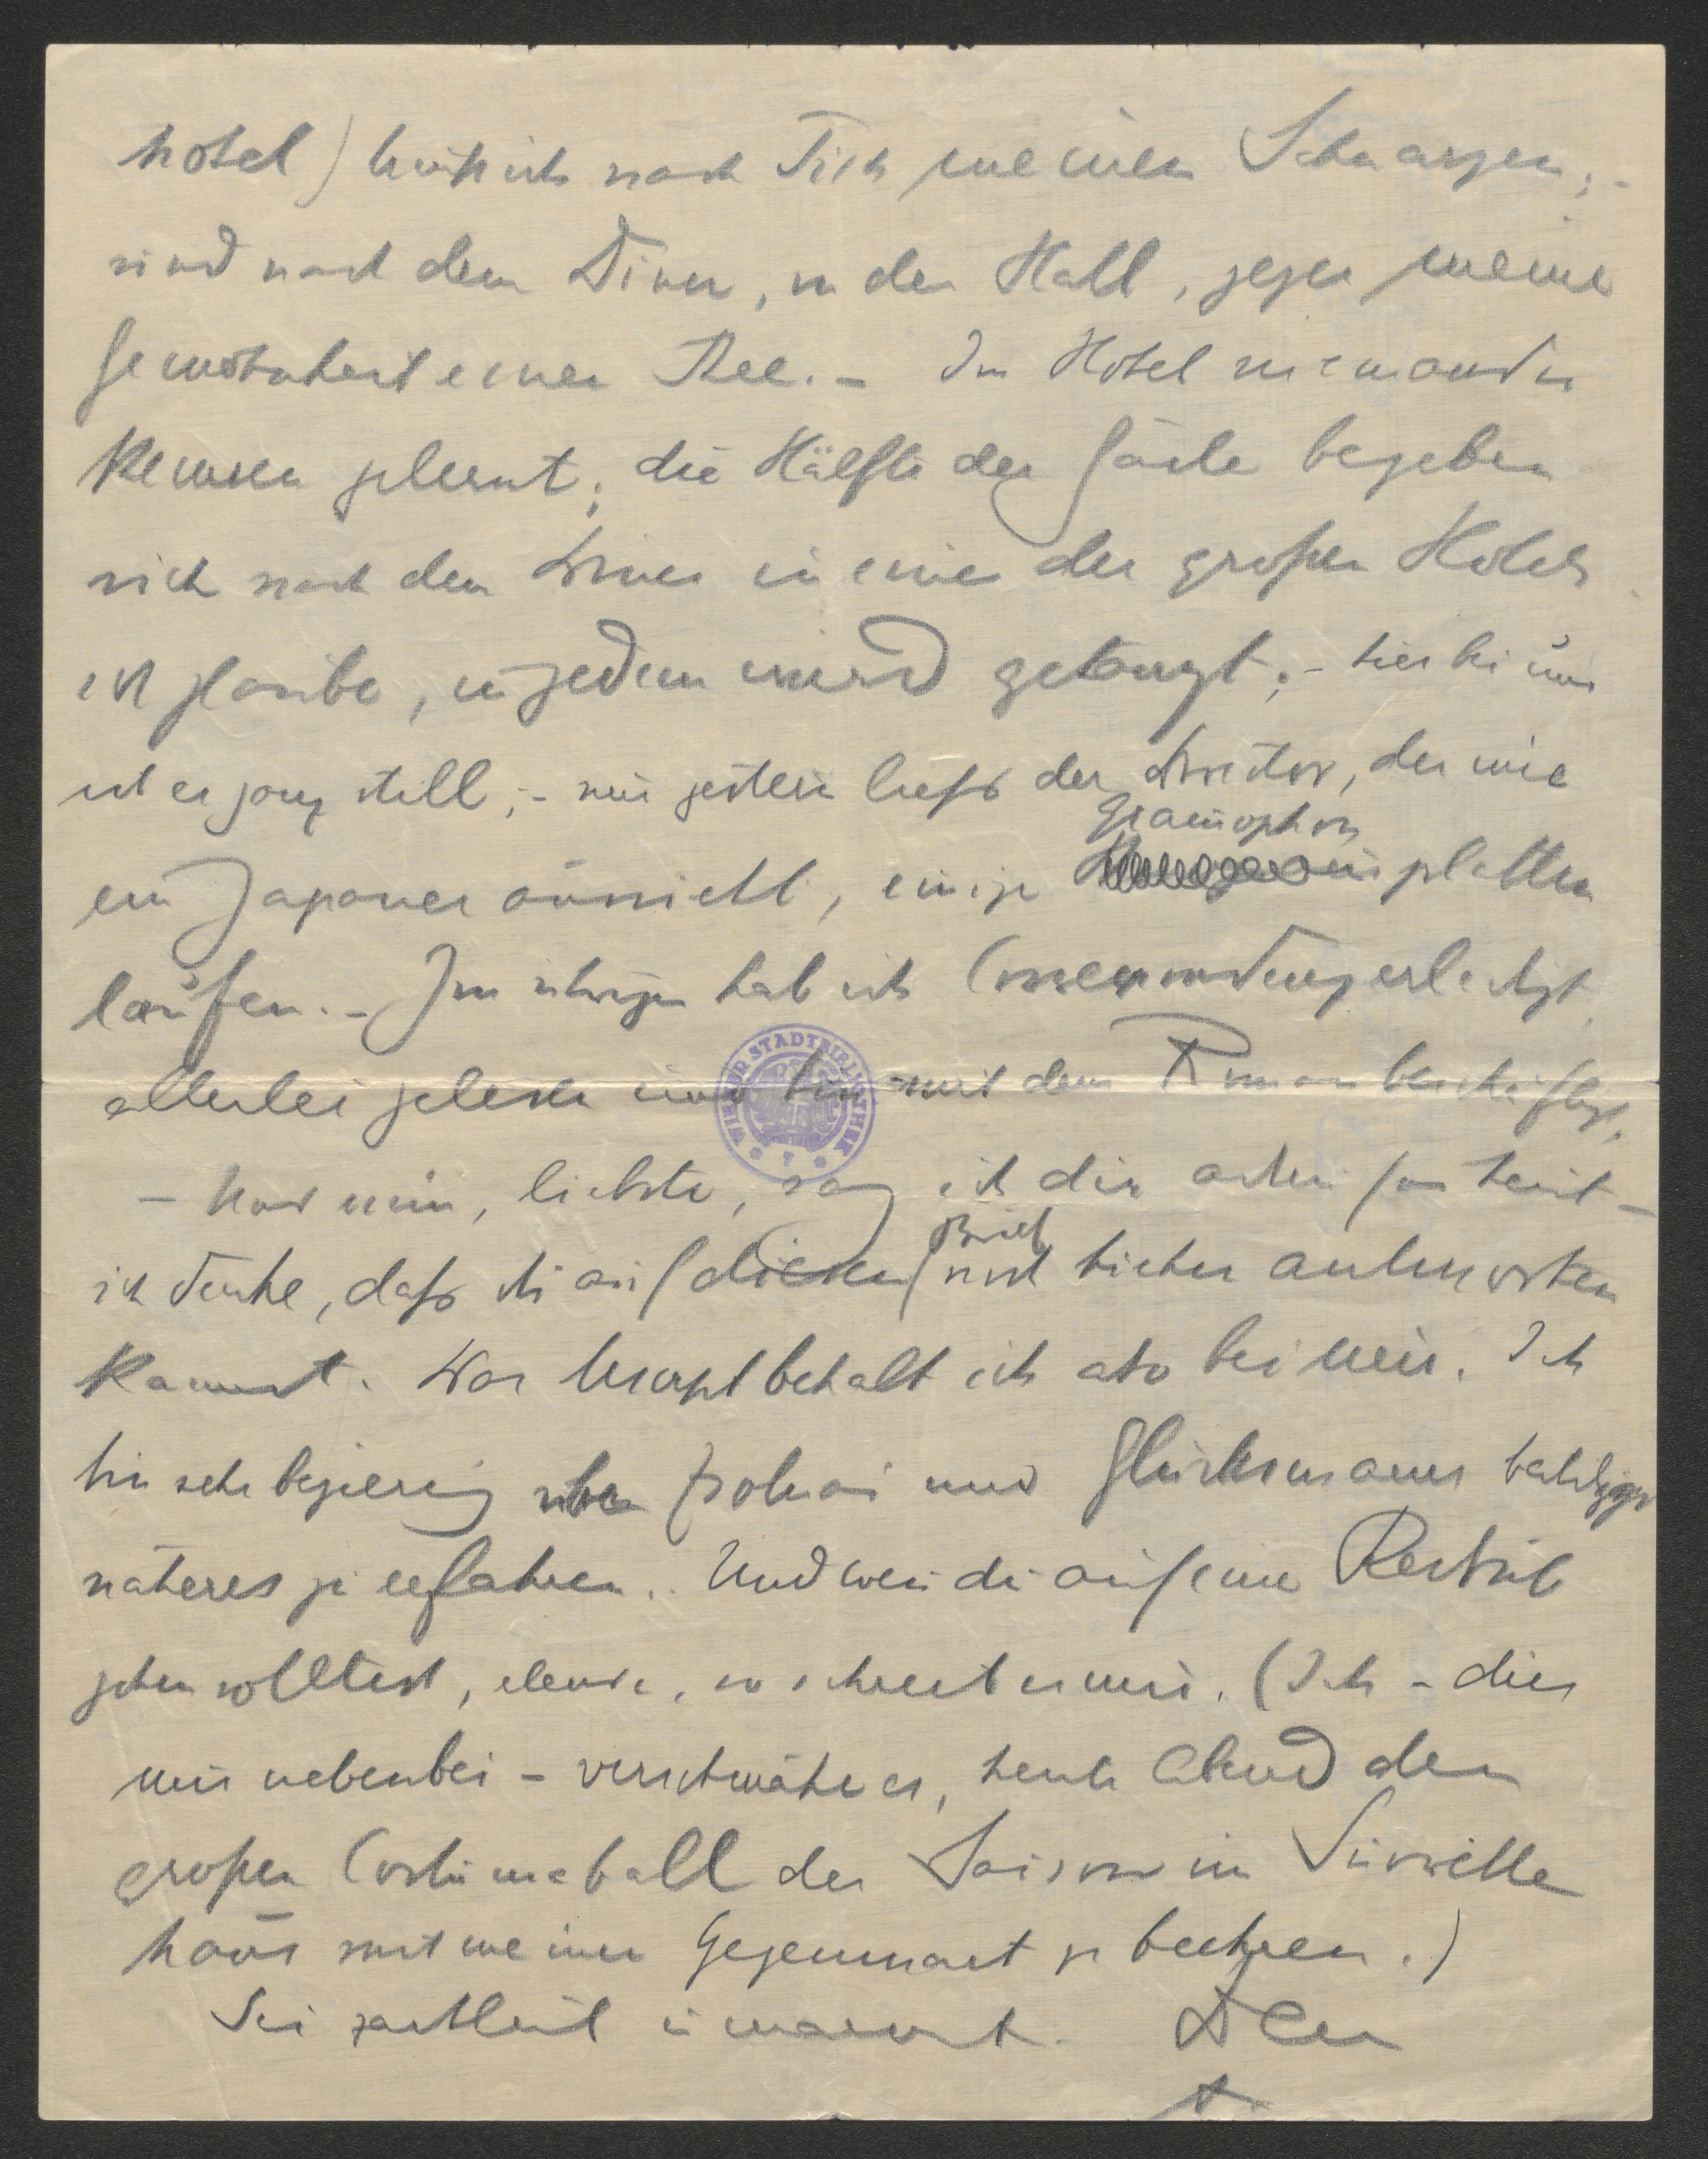 hotel) trink ich nach Tisch meinen Schwarzen;-
und nach dem Diner, in der Hall, gegen meine
Gewohnheit einen Thee.- Im Hotel niemanden
kennen gelernt; die Hälfte der Gäste begeben
sich nach dem Diner in eine der großen Hotels
ich glaube, in jedem wird getanzt;- hier bei uns
ist es ganz still;- nur gestern ließ der Direktor, der wie
ein Japaner aussieht, einige Gramophon platten
laufen.- Im übrigen hab ich Correspondenz erledigt,
allerlei gelesen und bin mit dem Roman beschäftigt.
WIENER STADTBIBLIOTHEK
- Und nun, liebste, sag ich dir adieu für heut-
ich denke, daß du auf diesen Brief noch hieher antworten
kannst. Das Manuscript behalt ich also bei mir. Ich
bin sehr begierig über und Glücksmann baldigst
näheres zu erfahren. Und wenn du auf eine Redoute
gehen solltest, ebenso, so schreib es mir. (Ich - dies
nur nebenbei - verschmähe es, heute Abend den
großen Costümeball der Saison in Suvretta
haus mit meiner Gegenwart zu beehren.)
Sei zärtlichst umarmt. Dein
A.